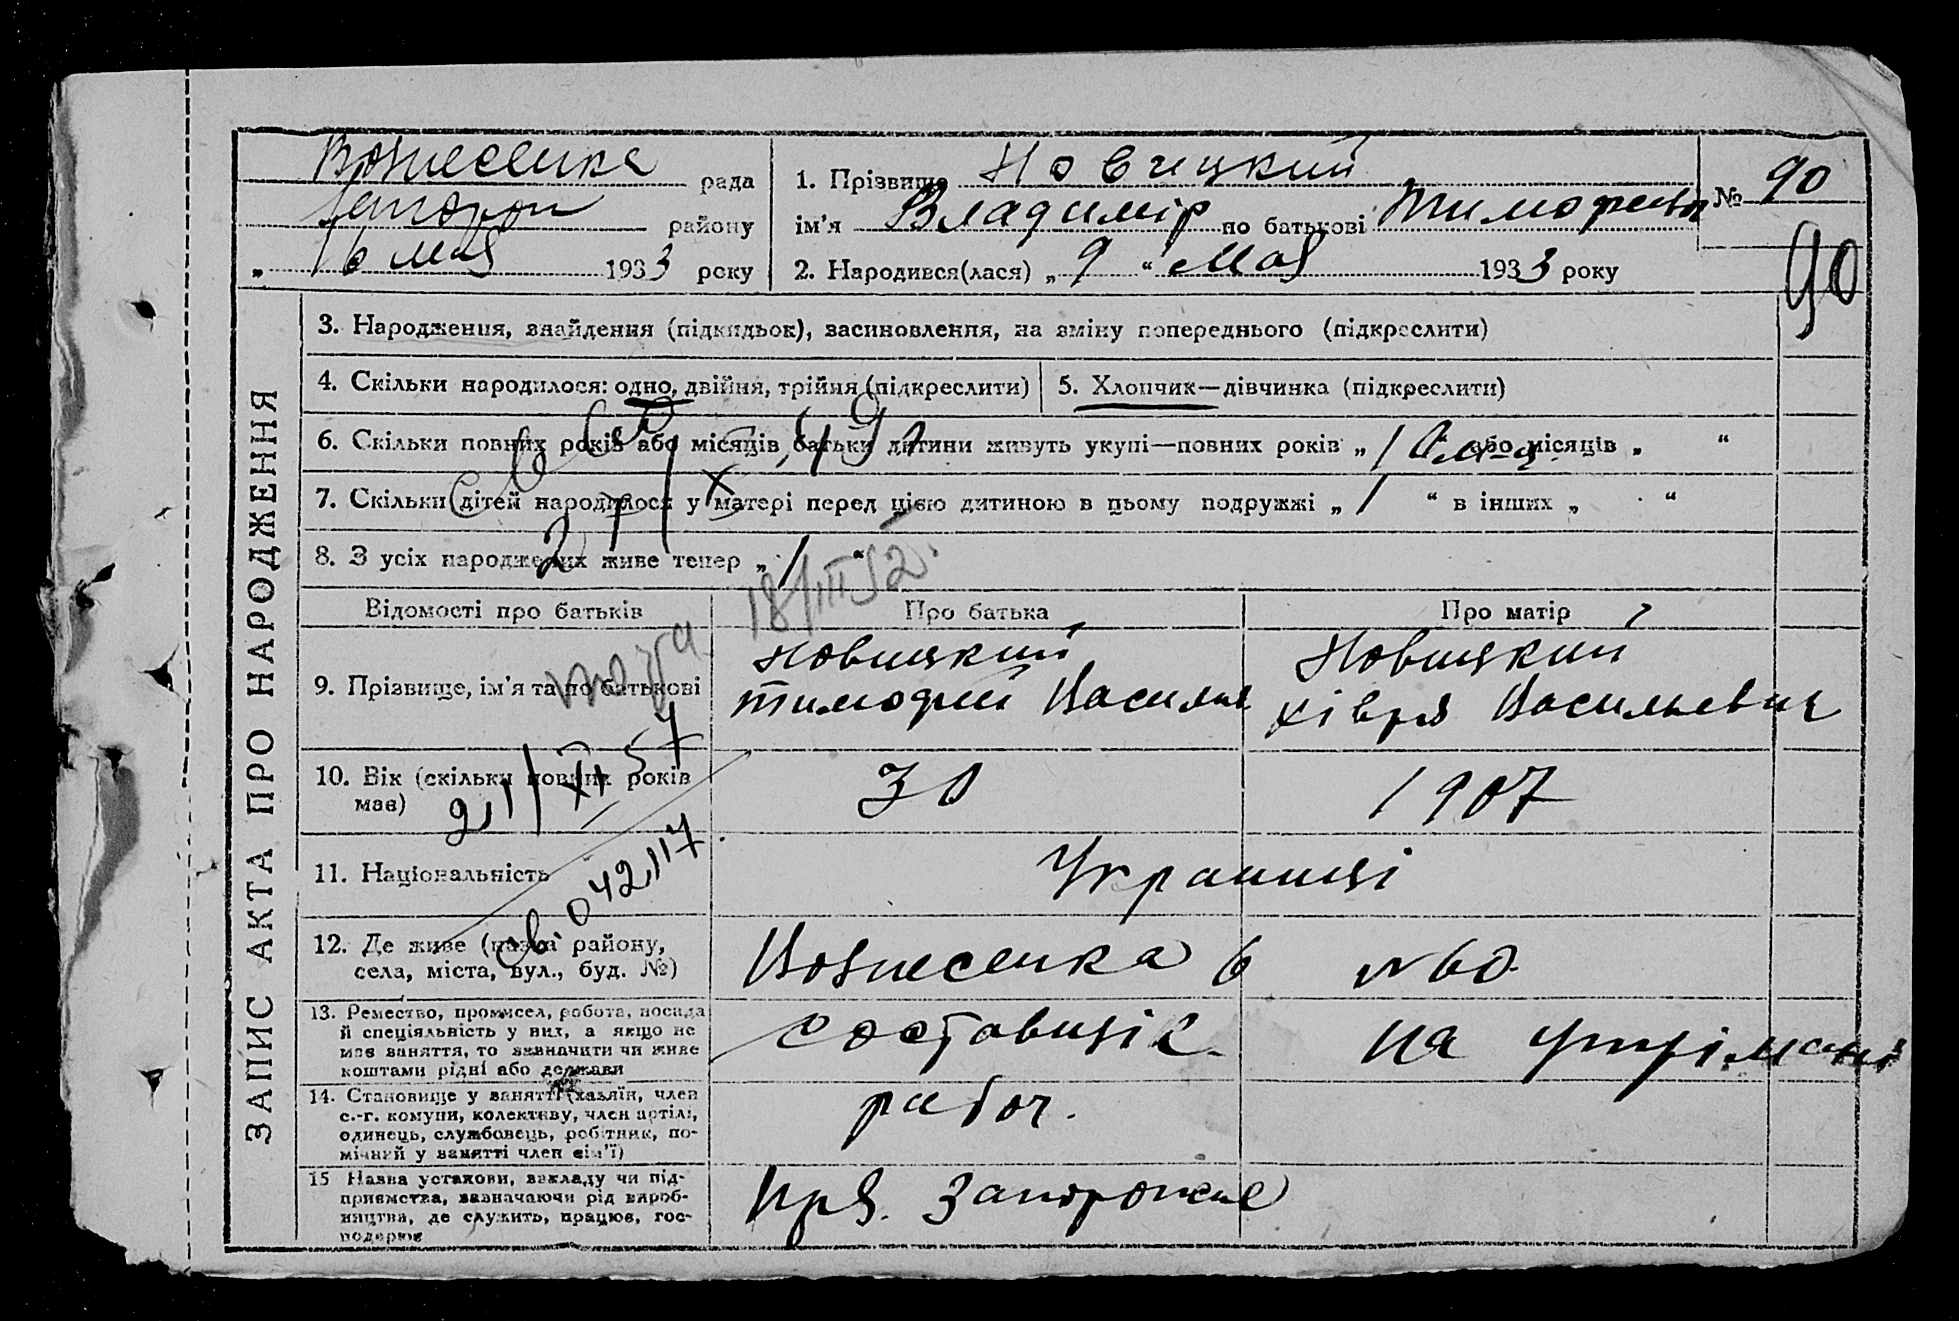 Вознесенка рада
Запорож району
„ 16 мая 1933 року
1. Прізвище Новицкий
ім’я Владимір по батькові Тимофеев
2. Народився(лася) „ 9 “ мая 1933 року
№ 90
90
ЗАПИС АКТА ПРО НАРОДЖЕННЯ
3. Народження, знайдення (підкидьок), засиновлення, на зміну попереднього (підкреслити)
4. Скільки народилося: одно, двійня, трійня (підкреслити)
5. Хлопчик—дівчинка (підкреслити)
6. Скільки повних років або місяців, батьки дитини живуть укупі—повних років „ 1 або місяців „ “
7. Скільки дітей народилося у матері перед цією дитиною в цьому подружжі „ 1 “ в інших „ “
8. З усіх народжених живе тепер „ 1 “
18/III 52.
Відомості про батьків
Про батька
Про матір
9. Прізвище, ім’я та по батькові
Новицкий
Тимофий Василив
Новицкий
Хівря Васильевна
10. Вік (скільки повних років
має)
30
1907
21/XI 57
св. 042117
11. Національність
Украинці
12. Де живе (назва району,
села, міста, вул., буд. №)
Вознесенка 6
№ 60
13. Ремество, промисел, робота, посада
й спеціяльність у них, а якщо не
має заняття, то зазначити чи живе
коштами рідні або держави
составиціє.
на утрімані
14. Становище у занятті (хазяїн, член
с.-г. комуни, колективу, член артілі,
одинець, службовець, робітник, по-
мічний у занятті член сім’ї)
рабоч.
15 Назва установи, закладу чи під-
приємства, зазначаючи рід вироб-
ництва, де служить, працює, гос-
подарює
Запорожие